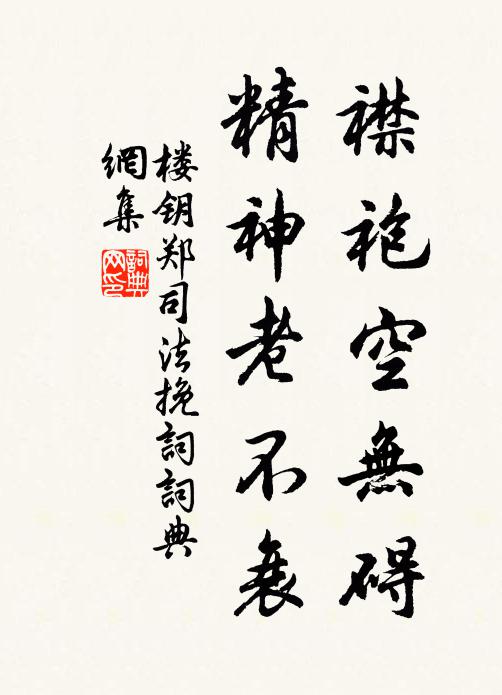 襟袍空無碍
精神老不衰
楼钥郑司法挽詞詞典
網集
詞典
网印